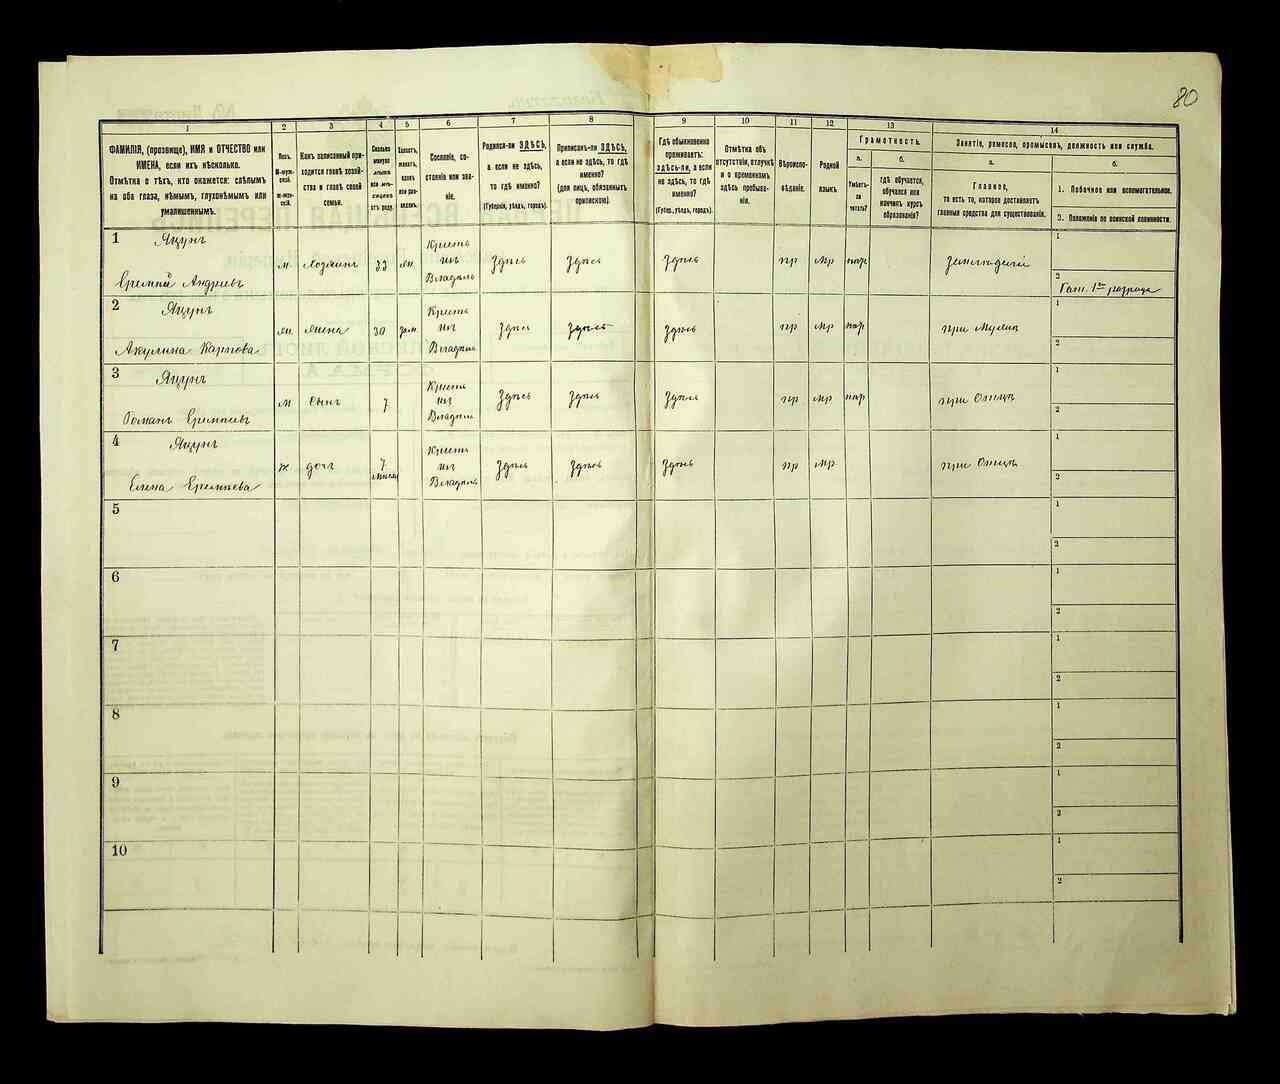 80
1 2 3 4 5 6 7 8 9 10 11 12 13 14
ФАМИЛІЯ, (прозвище), ИМЯ и ОТЧЕСТВО или
ИМЕНА, если ихъ нѣсколько.
Отмѣтка о тѣхъ, кто окажется: слѣпымъ
на оба глаза, нѣмымъ, глухонѣмымъ или
умалишеннымъ.
Полъ.
М-мужской.
Ж-женскій.
Какъ записанный приходится
главѣ хозяйства
и главѣ своей
семьи.
Сколько
минуло
лѣтъ
или мѣсяцевъ
отъ роду.
Холостъ,
женатъ,
вдовъ
или разведенъ.
Сословіе, состояніе
или званіе.
Родился-ли ЗДѢСЬ,
а если не здѣсь,
то гдѣ именно?
(Губернія, уѣздъ, городъ).
Приписанъ-ли ЗДѢСЬ,
а если не здѣсь, то гдѣ
именно?
(для лицъ, обязанныхъ
припискою).
Гдѣ обыкновенно
проживаетъ:
здѣсь-ли, а если
не здѣсь, то гдѣ
именно?
(Губерн., уѣздъ, городъ).
Отмѣтка объ
отсутствіи, отлучкѣ
и о временномъ
здѣсь пребываніи.
Вѣроисповѣданіе.
Родной
языкъ.
Грамотность.
а.
Умѣетъ-ли
читать?
б.
гдѣ обучается,
обучался или
кончилъ курсъ
образованія?
Занятіе, ремесло, промыселъ, должность или служба.
а.
Главное,
то есть то, которое доставляетъ
главныя средства для существованія.
б.
1. Побочное или вспомогательное.
2. Положеніе по воинской повинности.
1 Яцунъ
Еремпѣй Андреевъ
м. хозяинъ 33 жн. Крестьянинъ Владѣльч Здѣсь Здѣсь Здѣсь пр мр нгр земледѣлій
1
2
2 Яцунъ
Акулина Карпова
жн жена 30 зам. Здѣсь Здѣсь Здѣсь пр мр нгр при Мужѣ
1
2
3 Яцунъ
Романъ Еремпѣевъ
м сынъ 7 Здѣсь Здѣсь Здѣсь пр мр нгр при Отцѣ
1
2
4 Яцунъ
Елена Еремпѣева
ж дочь 7 Здѣсь Здѣсь Здѣсь пр мр при Отцѣ
1
2
5
1
2
6
1
2
7
1
2
8
1
2
9
1
2
10
1
2